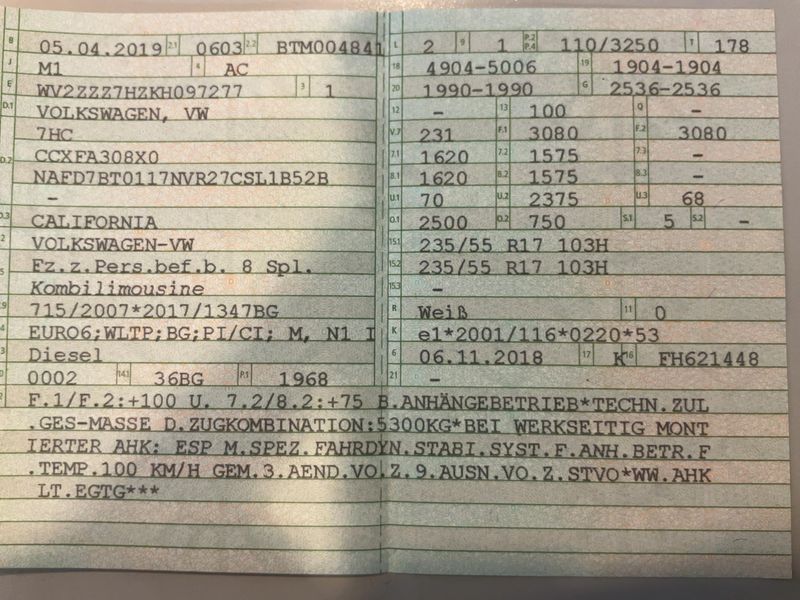 B 05.04.2019 2.1 0603 2.2 BTM004841
J M1 4 AC
E WV2ZZZ7HZKH097277 3 1
D.1 VOLKSWAGEN, VW
7HC
D.2 CCXFA308X0
NAFD7BT0117NVR27CSL1B52B
–
D.3 CALIFORNIA
2 VOLKSWAGEN-VW
5 Fz.z.Pers.bef.b. 8 Spl.
Kombilimousine
V.9 715/2007*2017/1347BG
14 EURO6;WLTP;BG;PI/CI; M, N1 I
P.3 Diesel
10 0002 14.1 36BG P.1 1968
L 2 9 1 P.2 P.4 110/3250 T 178
18 4904-5006 19 1904-1904
20 1990-1990 G 2536-2536
12 – 13 100 Q –
V.7 231 F.1 3080 F.2 3080
7.1 1620 7.2 1575 7.3 –
8.1 1620 8.2 1575 8.3 –
U.1 70 U.2 2375 U.3 68
O.1 2500 O.2 750 S.1 5 S.2 –
15.1 235/55 R17 103H
15.2 235/55 R17 103H
15.3 –
R Weiß 11 0
K e1*2001/116*0220*53
6 06.11.2018 17 K 16 FH621448
21 –
F.1/F.2:+100 U. 7.2/8.2:+75 B.ANHÄNGEBETRIEB*TECHN.ZUL
.GES-MASSE D.ZUGKOMBINATION:5300KG*BEI WERKSEITIG MONT
IERTER AHK: ESP M.SPEZ.FAHRDYN.STABI.SYST.F.ANH.BETR.F
.TEMP.100 KM/H GEM.3.AEND.VO.Z.9.AUSN.VO.Z.STVO*WW.AHK
LT.EGTG***